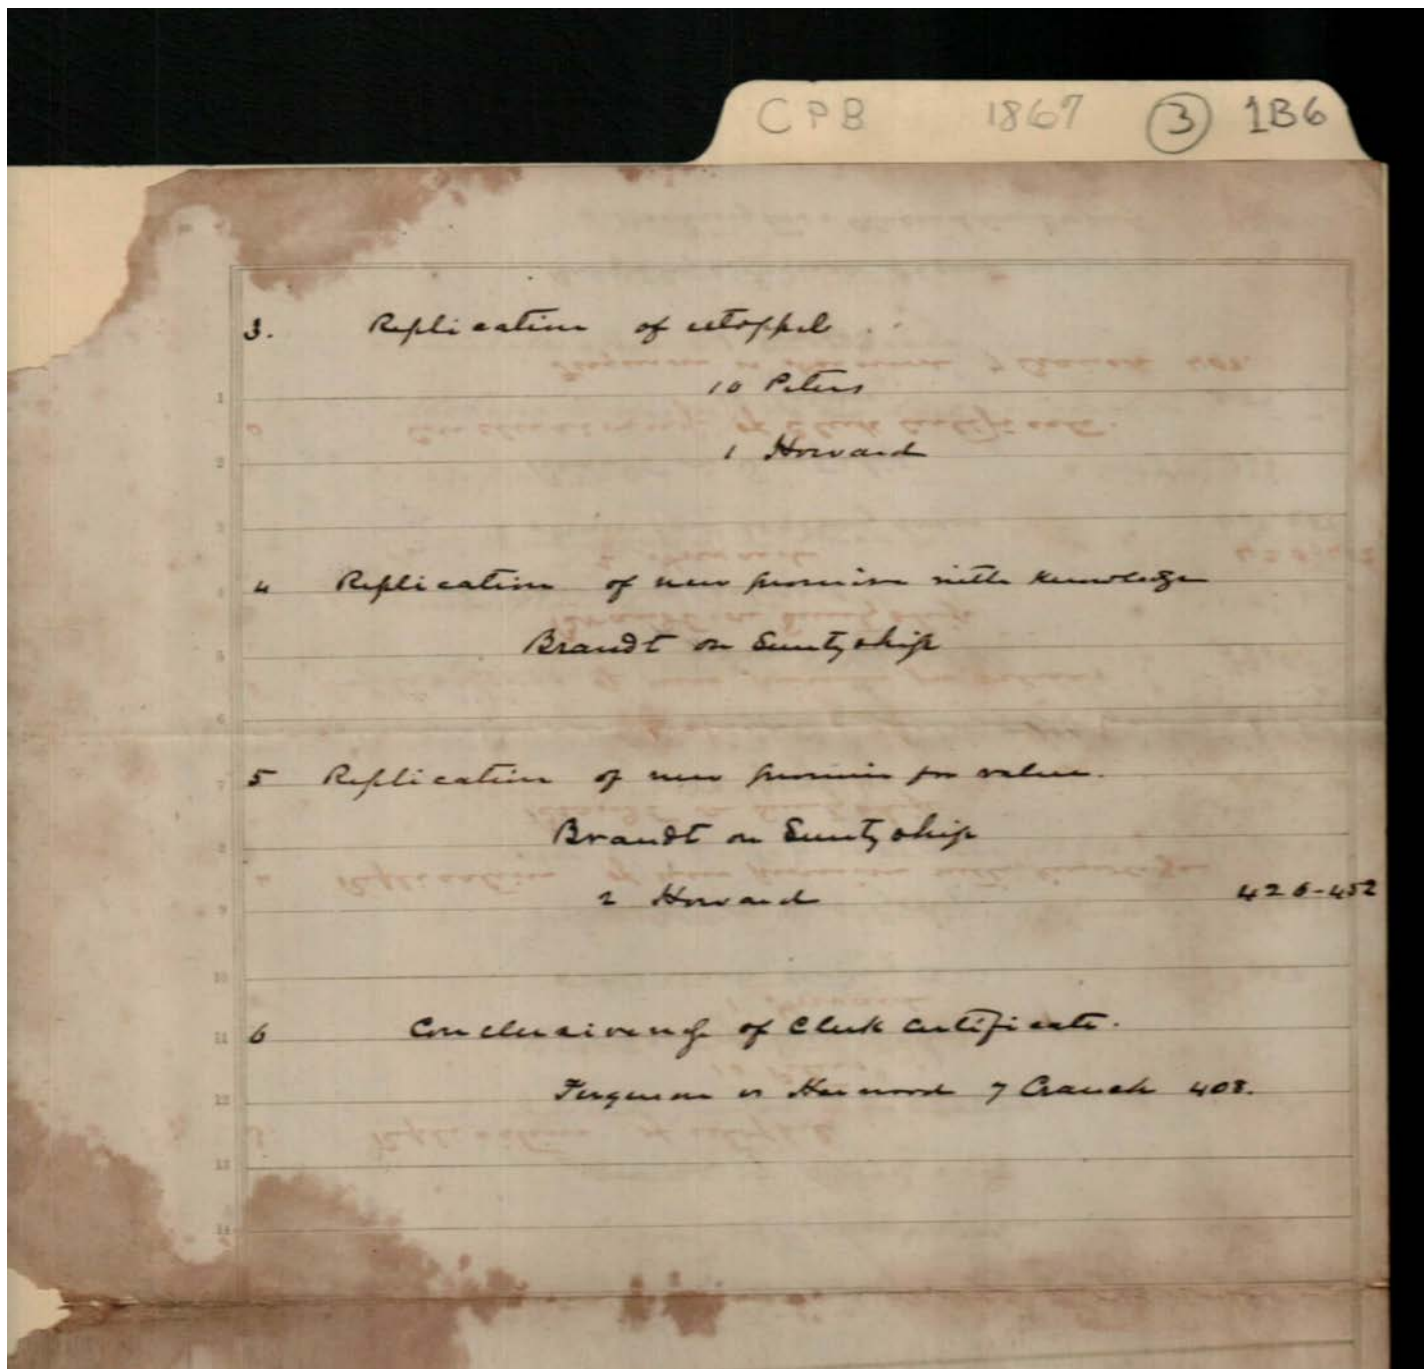 CPB 1867 3 1B6
3. Replication of estoppel
10 Peters
1 Howard
4 Replication of new promise with knowledge
Brandt on Suretyship
5 Replication of new promise for value.
Brandt on Suretyship
2 Howard 426-452
6 Conclusiveness of Clerk Certificate.
Ferguson vs Harwood 7 Cranch 408.